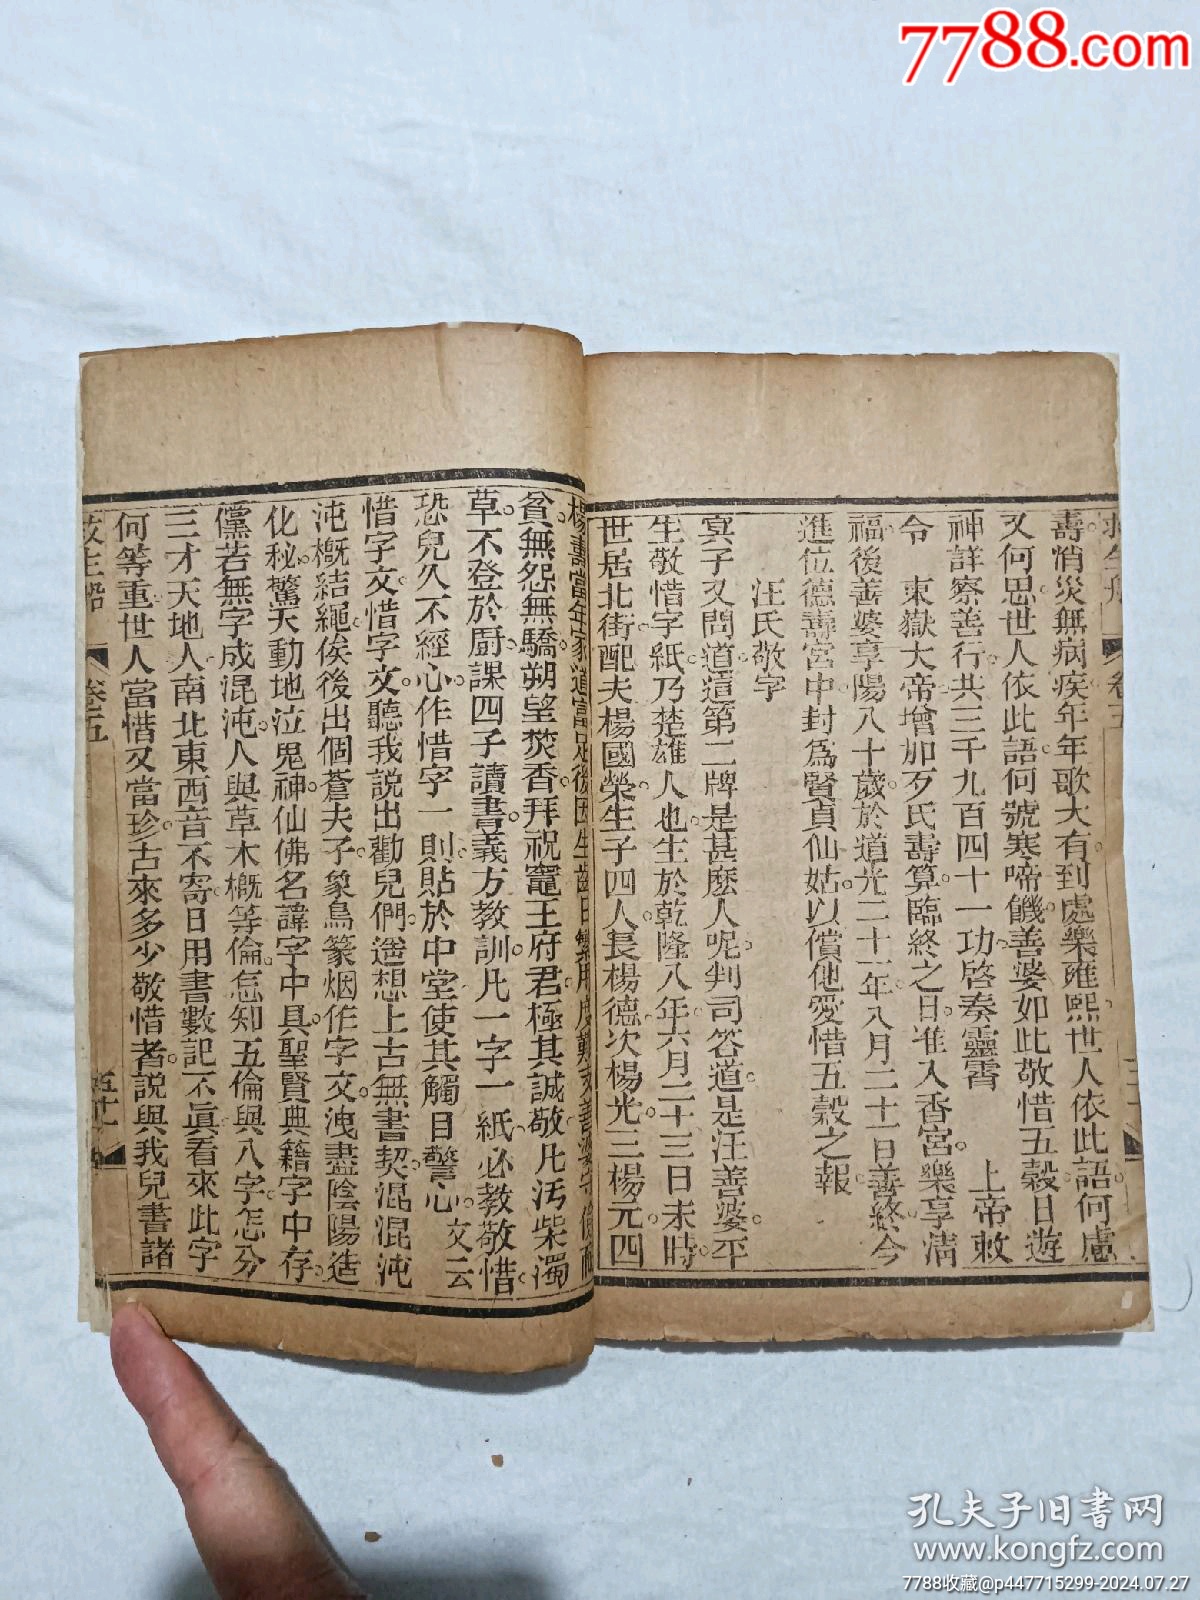 7788.com
壽消災無病疾年年歌大有到處樂雍熙世人依此語何處
又何思世人依此語何號寒啼饑善婆如此敬惜五穀日遊
神詳察善行共三千九百四十一功啓奏靈霄 上帝敕
令 東獄大帝增加歹氏壽算臨終之日准入香宮樂享淸
福後善婆享陽八十歲於道光二十一年八月二十日善終今
進位德壽宮中封爲賢貞仙姑以償他愛惜五穀之報
汪氏敬字
冥子又問道這第二牌是甚麼人呢判司答道是汪善婆平
生敬惜字紙乃楚雄人也生於乾隆八年六月二十三日未時
世居北街配夫楊國榮生子四人長楊德次楊光三楊元四
楊壽當年家道富足後因生齒日繁用度難支善婆守儉而
貧無怨無驕朔望焚香拜祝竈王府君極其誠敬凡汚柴濁
草不登於厨課四子讀書義方教訓凡一字一紙必教敬惜
恐兒久不經心作惜字一則貼於中堂使其觸目警心 文云
惜字文惜字文聽我說出勸兒們遥想上古無書契混混沌
沌概結繩俟後出個蒼夫子象鳥篆烟作字文洩盡陰陽造
化秘驚天動地泣鬼神仙佛名諱字中具聖賢典籍字中存
儻若無字成混沌人與草木概等倫怎知五倫與八字怎分
三才天地人南北東西音不寄日用書數記不眞看來此字
何等重世人當惜又當珍古來多少敬惜者說與我兒書諸
救生船 卷五
孔夫子旧书网
www.kongfz.com
7788收藏@p447715299-2024.07.27